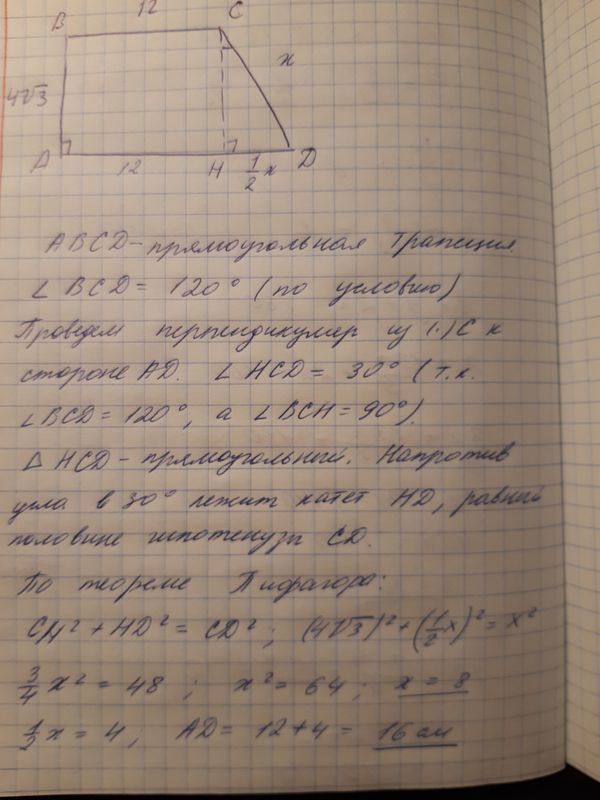 12
B C
4√3 x
A 12 H ½x D
ABCD - прямоугольная трапеция.
∠ BCD = 120° (по условию)
Проведем перпендикуляр из (·) C к
стороне AD. ∠ HCD = 30° (т.к.
∠BCD = 120°, а ∠BCH = 90°).
△ HCD - прямоугольный. Напротив
угла в 30° лежит катет HD, равный
половине гипотенузы CD.
По теореме Пифагора:
CH² + HD² = CD² ; (4√3)² + (½x)² = x²
¾x² = 48 ; x² = 64 ; x = 8
½x = 4 ; AD = 12 + 4 = 16 см